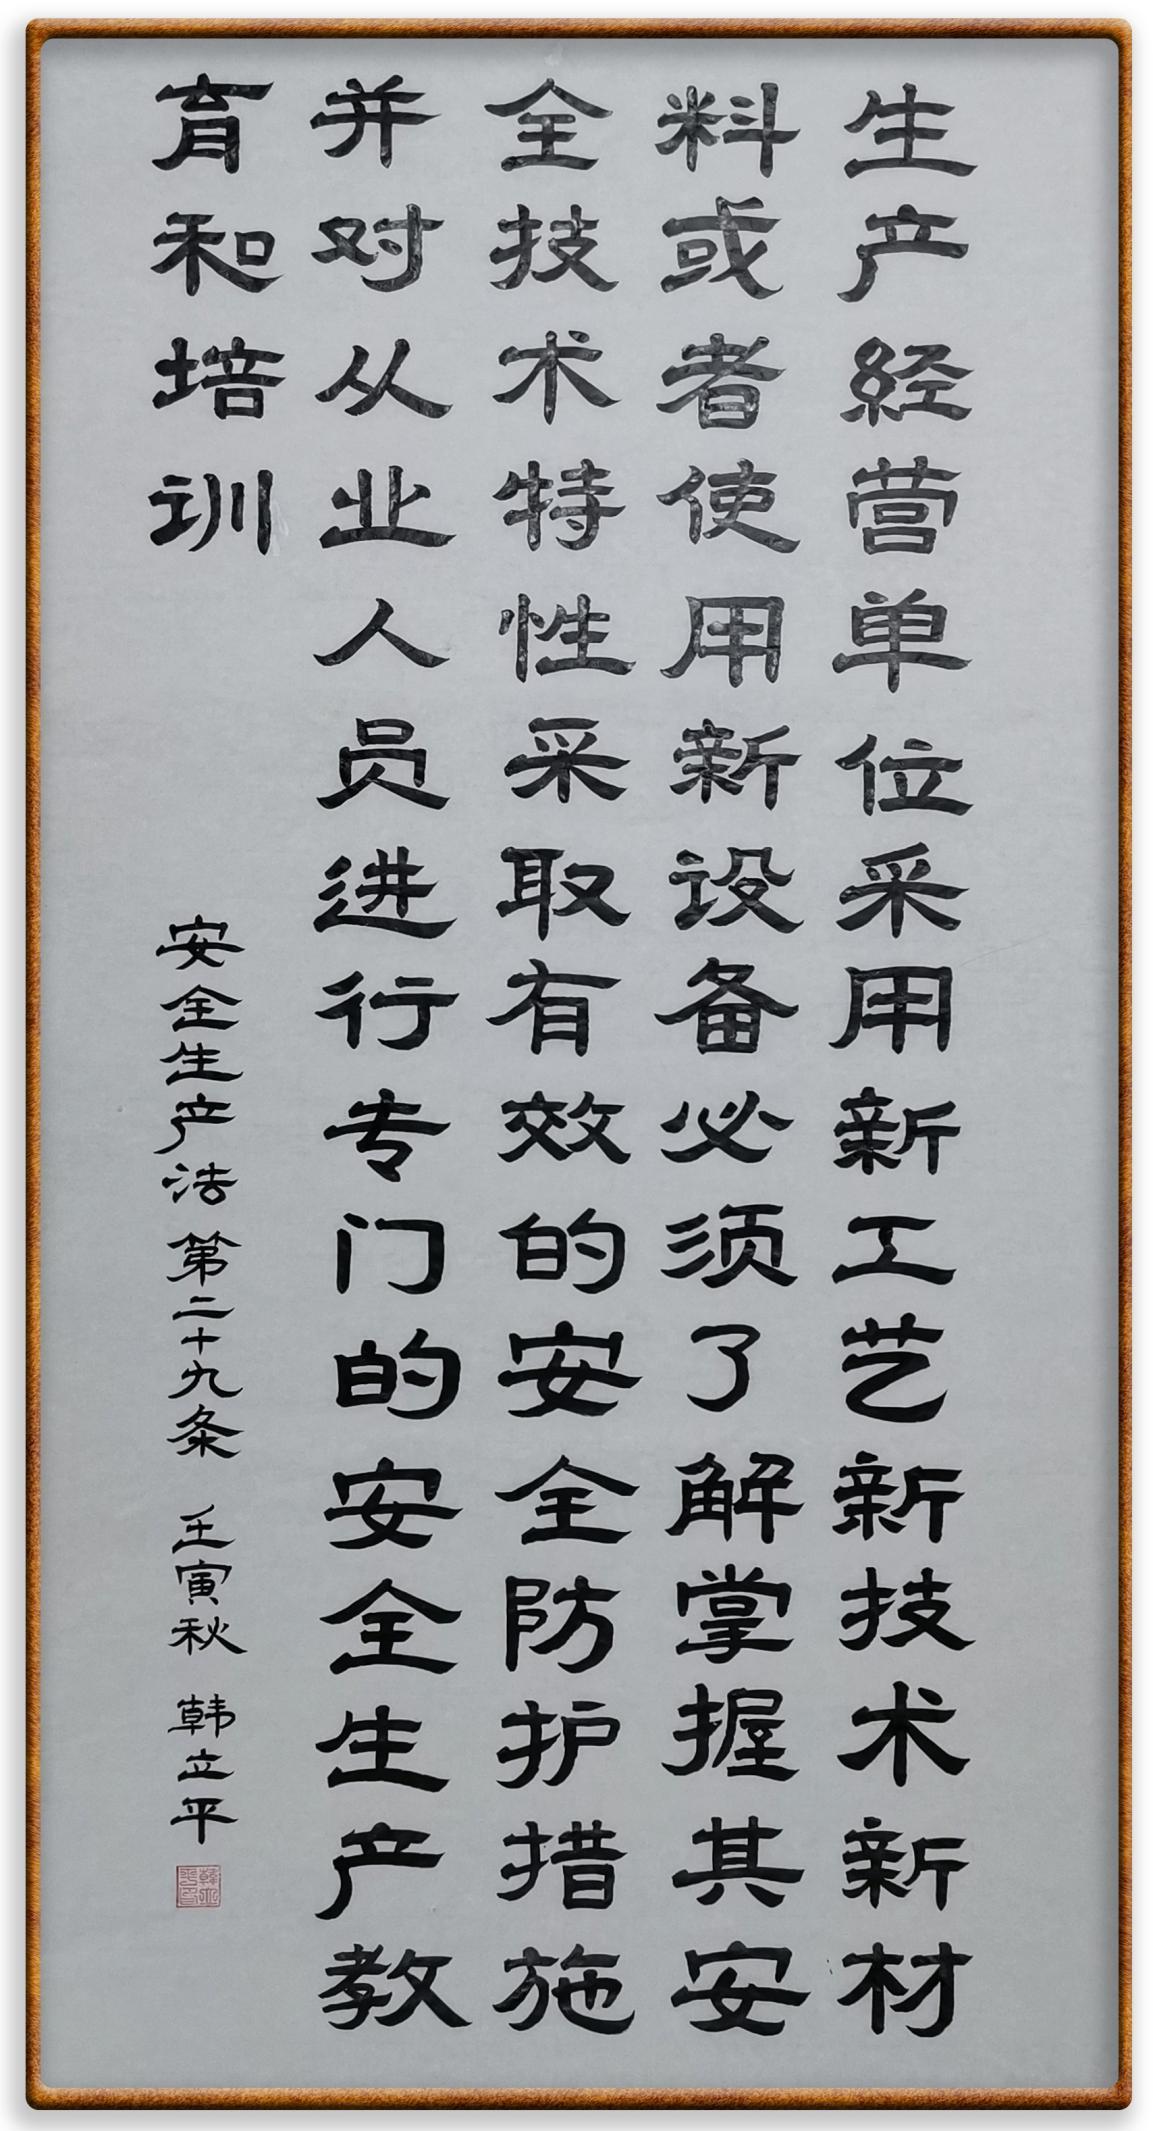 生产经营单位采用新工艺新技术新材
料或者使用新设备必须了解掌握其安
全技术特性采取有效的安全防护措施
并对从业人员进行专门的安全生产教
育和培训
安全生产法第二十九条 壬寅秋 韩立平